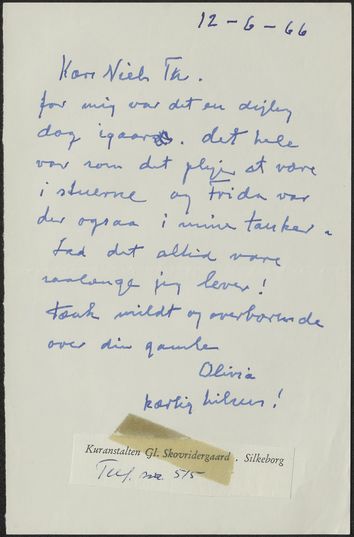 12-6-66
Kære Niels Th.
for mig var det en dejlig
dag igaar. det hele
var som det plejer at være
i stuerne og Frida var
der ogsaa i mine tanker.
Lad det altid være
saalænge jeg lever!
tænk mildt og overbærende
over din gamle
Olivia
kærlig hilsen!
Kuranstalten Gl. Skovridergaard . Silkeborg
5/5